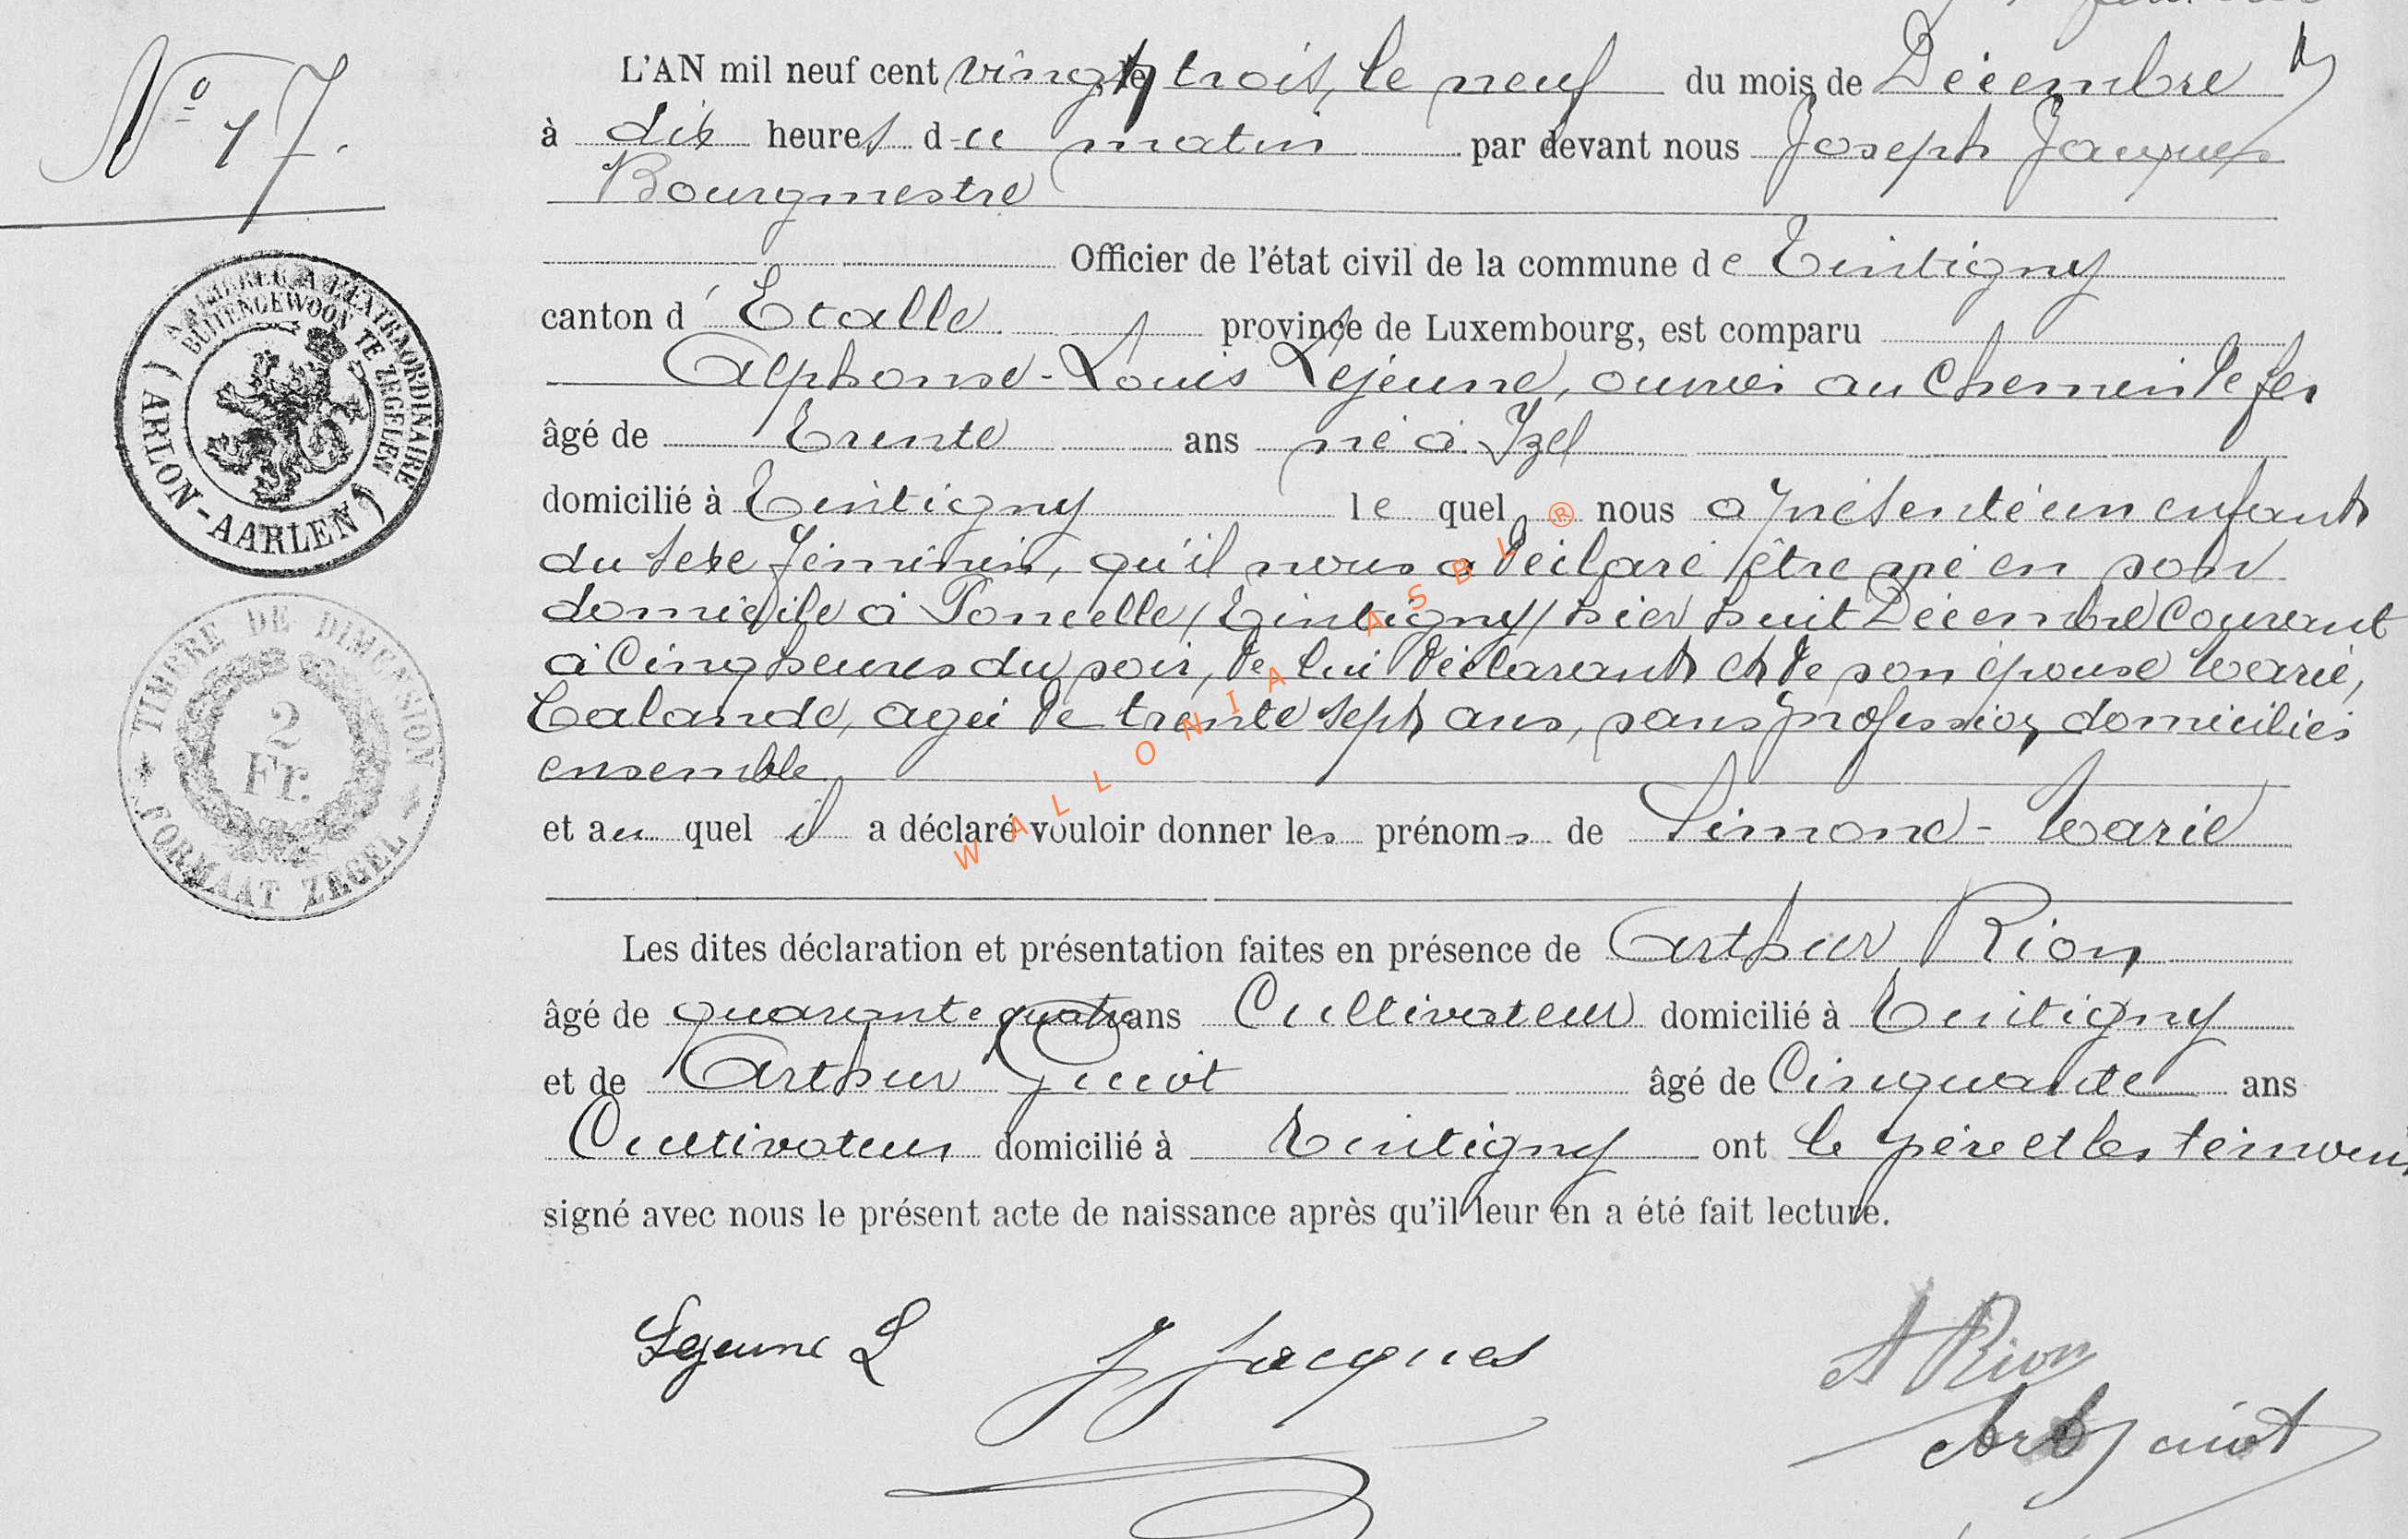 Nº 17.
L'AN mil neuf cent vingt trois, le neuf du mois de Décembre
à dix heures du matin par devant nous Joseph Jacques
Bourgmestre
Officier de l'état civil de la commune de Tintigny
canton d'Etalle province de Luxembourg, est comparu
Alphonse-Louis Lejeune, ouvrier au chemin de fer
âgé de trente ans né à Izel
domicilié à Tintigny lequel nous a présenté un enfant
du sexe féminin, qu'il nous a déclaré être né en son
domicile à Poncelle /Tintigny/ hier huit Décembre courant
à cinq heures du soir, de lui déclarant et de son épouse Marie,
agée de trente sept ans, sans profession, domiciliés
ensemble
et au quel il a déclaré vouloir donner les prénoms de Simone-Marie
Les dites déclaration et présentation faites en présence de Arthur Rion
âgé de quarante quatre ans Cultivateur domicilié à Tintigny
et de Arthur âgé de Cinquante ans
Cultivateur domicilié à Tintigny ont le père et les témoins
signé avec nous le présent acte de naissance après qu'il leur en a été fait lecture.
Lejeune L J Jacques A Rion
ARLON-AARLEN
BUITENGEWOON TE ZEGELEN
TIMBRE DE DIMENSION
2
Fr.
FORMAAT ZEGEL
WALLONIA ASBL ®